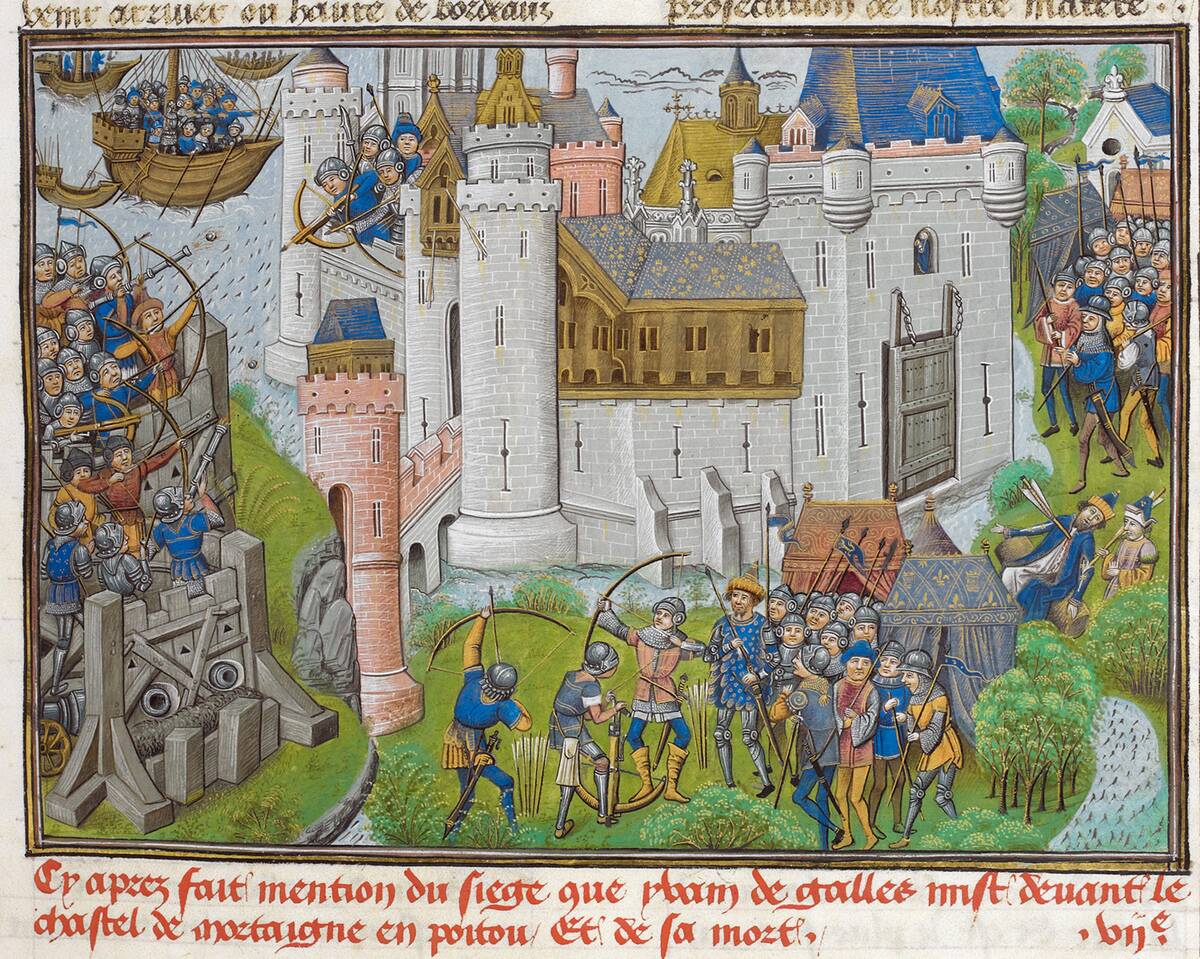 venir arriver ou havre de bordeaux prosecution de nostre matere .
Cy aprez fait mention du siege que yvain de galles mist devant le
chastel de mortaigne en poitou / Et de sa mort . . vije